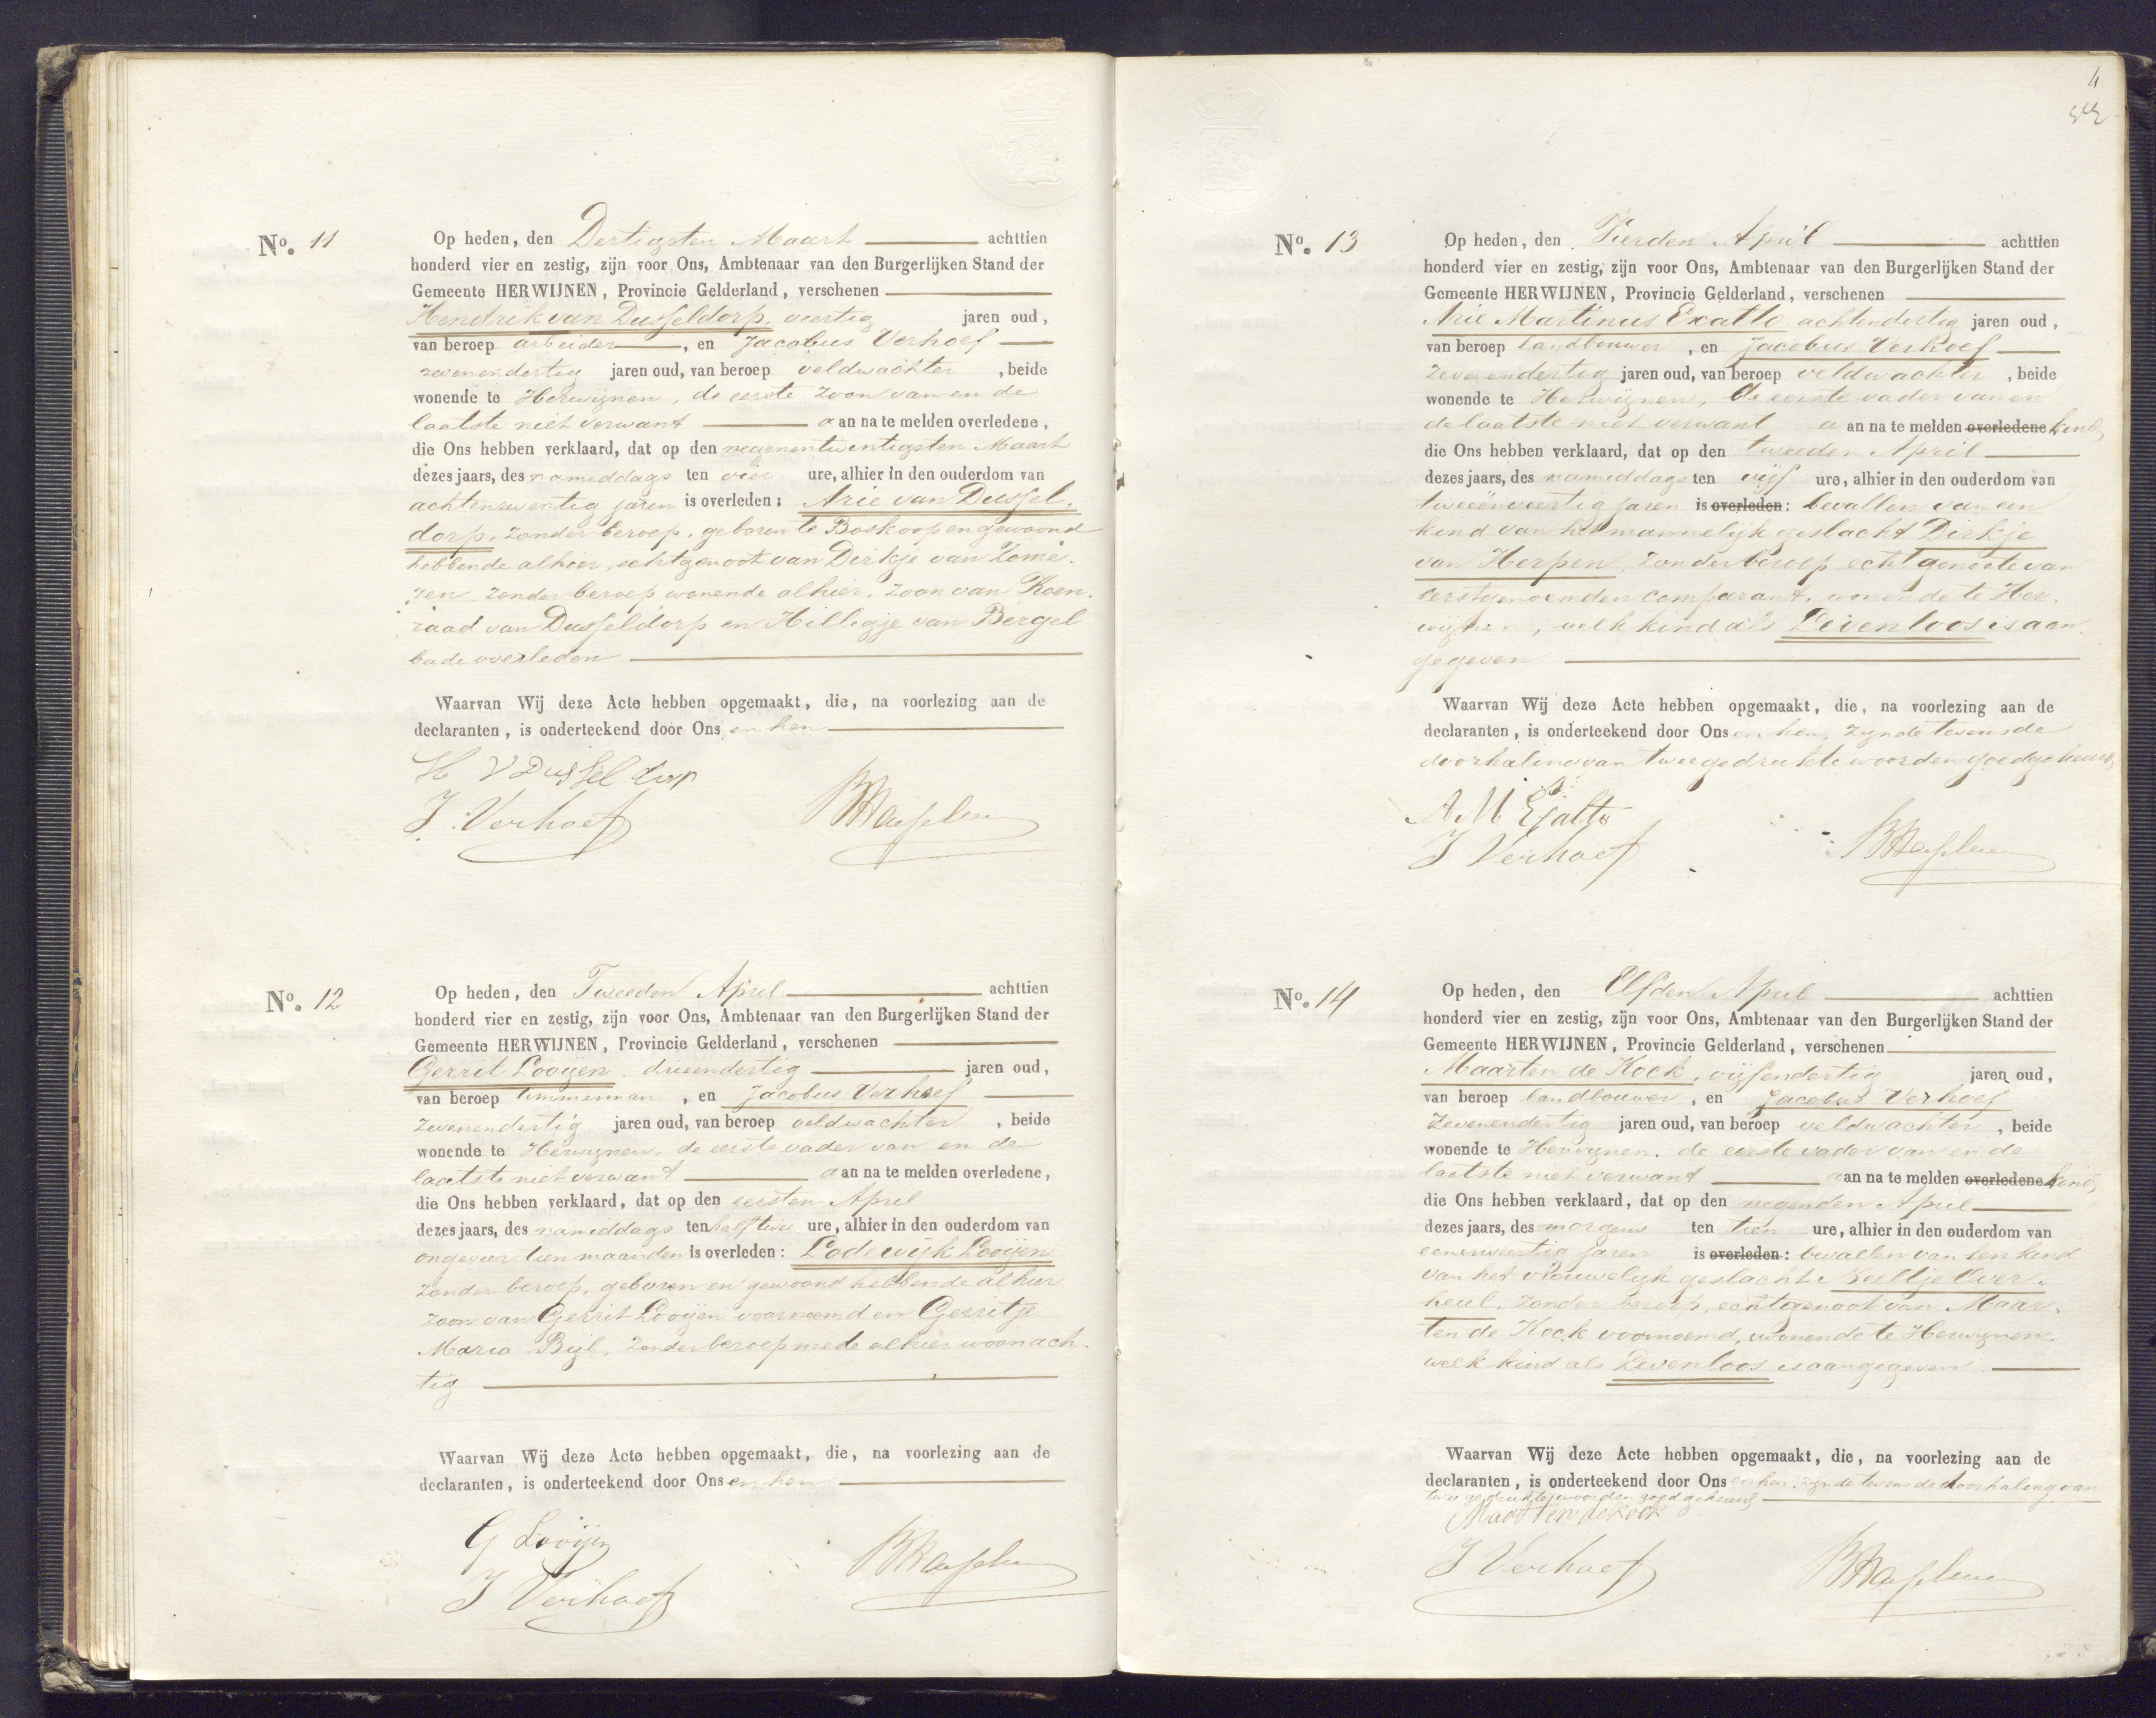 No. 11
Op heden, den Dertigsten Maart achttien
honderd vier en zestig, zijn voor Ons, Ambtenaar van den Burgerlijken Stand der
Gemeente HERWIJNEN, Provincie Gelderland, verschenen
Hendrik van Dusseldorp, veertig jaren oud,
van beroep arbeider, en Jacobus Verhoef
zevenendertig jaren oud, van beroep veldwachter, beide
wonende te Herwijnen, de eerste zoon van en de
laatste niet verwant aan na te melden overledene,
die Ons hebben verklaard, dat op den negenentwintigsten Maart
dezes jaars, des namiddags ten vier ure, alhier in den ouderdom van
achtenzeventig jaren is overleden: Arie van Dussel-
dorp, zonder beroep, geboren te Boskoop en gewoond
hebbende alhier, echtgenoot van Dirkje van Zome-
ren zonder beroep wonende alhier, zoon van Koen-
raad van Dusseldorp en Hilligje van Bergel
beide overleden
Waarvan Wij deze Acte hebben opgemaakt, die, na voorlezing aan de
declaranten, is onderteekend door Ons en hen
H V Dusseldorp
J. Verhoef
No. 12
Op heden, den Tweeden April achttien
honderd vier en zestig, zijn voor Ons, Ambtenaar van den Burgerlijken Stand der
Gemeente HERWIJNEN, Provincie Gelderland, verschenen
Gerrit Looijen drieendertig jaren oud,
van beroep timmerman, en Jacobus Verhoef
zevenendertig jaren oud, van beroep veldwachter, beide
wonende te Herwijnen, de eerste vader van en de
laatste niet verwant aan na te melden overledene,
die Ons hebben verklaard, dat op den eersten April
dezes jaars, des namiddags ten half twee ure, alhier in den ouderdom van
ongeveer tien maanden is overleden: Lodewijk Looijen
zonder beroep, geboren en gewoond hebbende alhier
zoon van Gerrit Looijen voornoemd en Gerritje
Maria Bijl, zonder beroep mede alhier woonach-
tig
Waarvan Wij deze Acte hebben opgemaakt, die, na voorlezing aan de
declaranten, is onderteekend door Ons en hen
G Looijen
J Verhoef
4
No. 13
Op heden, den Vierden April achttien
honderd vier en zestig, zijn voor Ons, Ambtenaar van den Burgerlijken Stand der
Gemeente HERWIJNEN, Provincie Gelderland, verschenen
Arie Martinus Exalto achtendertig jaren oud,
van beroep landbouwer, en Jacobus Verhoef
zevenendertig jaren oud, van beroep veldwachter, beide
wonende te Herwijnen, de eerste vader van en
de laatste niet verwant aan na te melden overledene kind,
die Ons hebben verklaard, dat op den tweeden April
dezes jaars, des namiddags ten vijf ure, alhier in den ouderdom van
tweeënveertig jaren is overleden: bevallen van een
kind van het mannelijk geslacht Dirkje
van Herpen, zonder beroep echtgenoote van
eerstgenoemden comparant, wonende te Her-
wijnen, welk kind als Levenloos is aan-
gegeven
Waarvan Wij deze Acte hebben opgemaakt, die, na voorlezing aan de
declaranten, is onderteekend door Ons en hen, zijnde tevens de
doorhaling van twee gedrukte woorden goedgekeurd
A M Exalto
J Verhoef
No. 14
Op heden, den Elfden April achttien
honderd vier en zestig, zijn voor Ons, Ambtenaar van den Burgerlijken Stand der
Gemeente HERWIJNEN, Provincie Gelderland, verschenen
Maarten de Kock, vijfendertig jaren oud,
van beroep landbouwer, en Jacobus Verhoef
zevenendertig jaren oud, van beroep veldwachter, beide
wonende te Herwijnen, de eerste vader van en de
laatste niet verwant aan na te melden overledene kind,
die Ons hebben verklaard, dat op den negenden April
dezes jaars, des morgens ten tien ure, alhier in den ouderdom van
eenenveertig jaren is overleden: bevallen van een kind
van het vrouwelijk geslacht Neeltje Over-
heul, zonder beroep, echtgenoot van Maar-
ten de Kock voornoemd, wonende te Herwijnen,
welk kind als Levenloos is aangegeven
Waarvan Wij deze Acte hebben opgemaakt, die, na voorlezing aan de
declaranten, is onderteekend door Ons en hen zijnde tevens de doorhaling van
twee gedrukte woorden goedgekeurd
Maarten de Kock
J Verhoef